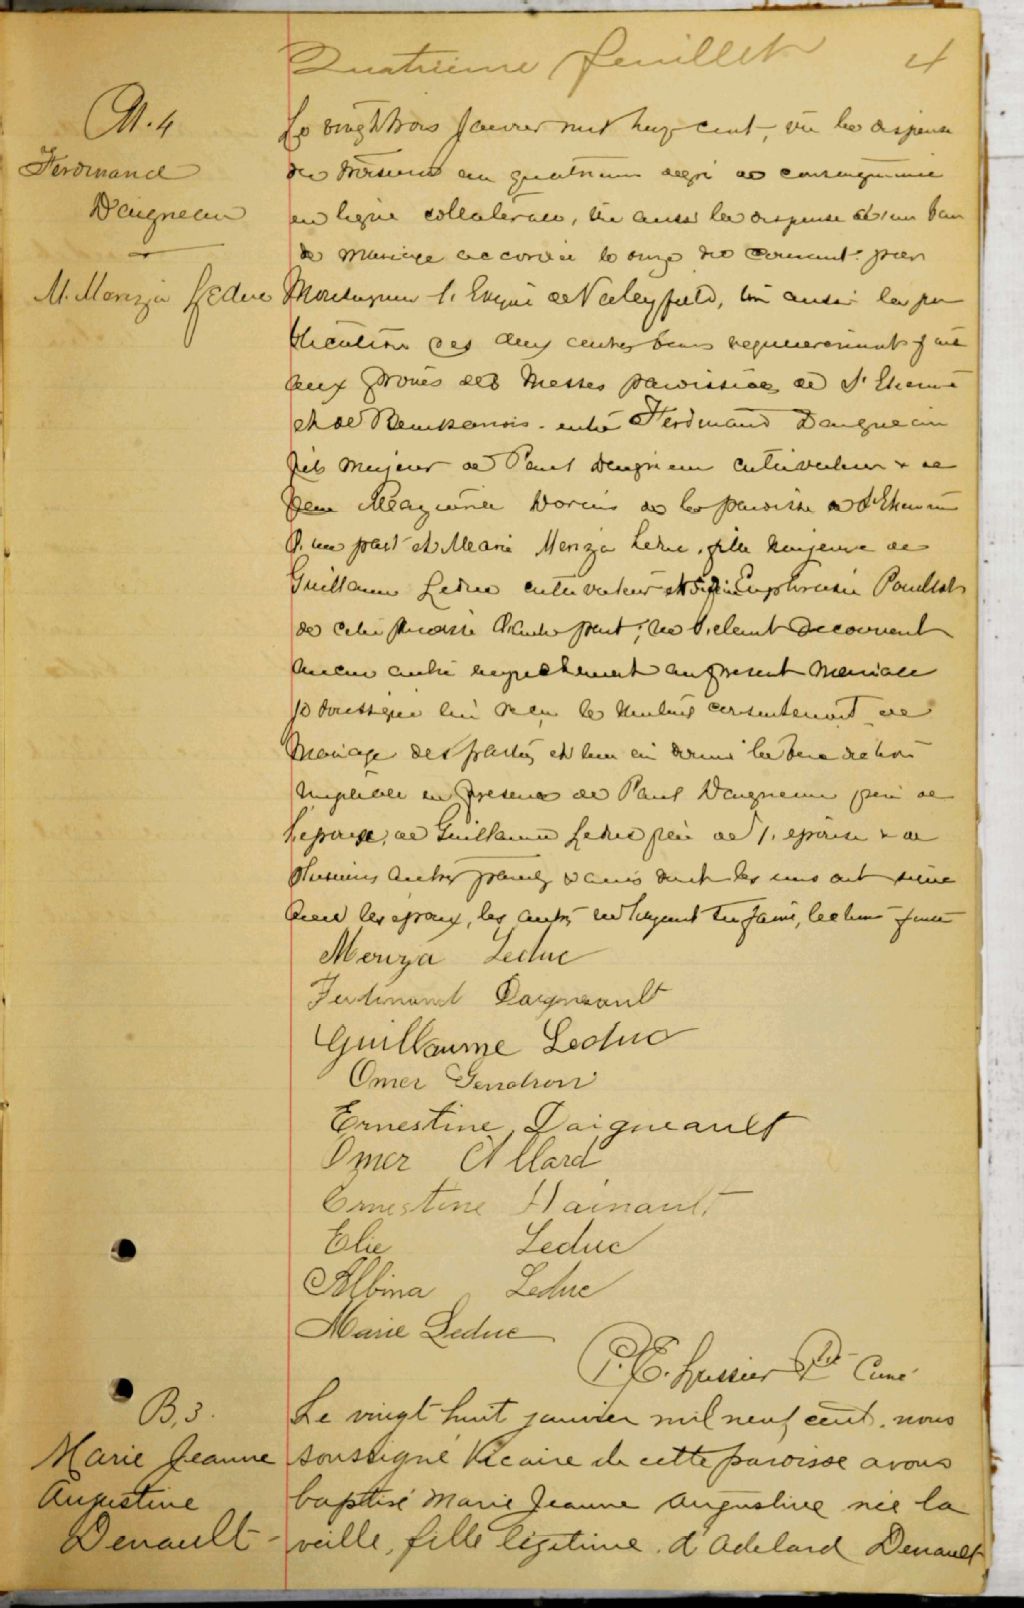 Quatrieme feuillet 4
M. 4
Ferdinand
Daigneau
M. Meriza Leduc
Le vingt trois Janvier mil neuf cent, vu la dispense
du troisieme au quatrieme degré de consanguinité
en ligne collaterale, vu aussi la dispense d'un ban
de mariage accordée le onze du courant par
Monseigneur l'Evêque de Valleyfield, vu aussi la pu
blication des deux autres bans regulierement faite
aux prônes des Messes paroissiales de St Etienne
et de Beauharnois entre Ferdinand Daigneau
fils majeur de Paul Daigneau cultivateur & de
feue de la paroisse de St Etienne
d'une part et Marie Meriza Leduc, fille majeure de
Guillaume Leduc cultivateur et de Euphrosie
de cette paroisse d'autre part; ne s'etant decouvert
aucun autre empechement au present mariage
je soussigné ai recu le mutuel consentement de
mariage des parties et leur ai donné la benediction
nuptiale en presence de Paul Daigneau pere de
l'epoux, de Guillaume Leduc père de l'epouse & de
plusieurs autres parents & amis dont les uns ont signé
avec les époux, les autres ne le faire, lecture faite
Meriza Leduc
Ferdinand Daigneault
Guillaume Leduc
Omer Gendron
Ernestine Daigneault
Omer Allard
Ernestine Hainault
Elie Leduc
Albina Leduc
Marie Leduc
P. E. Lussier Ptre Curé
B, 3.
Marie Jeanne
Augustine
Denault
Le vingt huit janvier mil neuf cent, nous
soussigné Vicaire de cette paroisse avons
baptisé Marie Jeanne Augustine née la
veille, fille légitime d'Adelard Denault